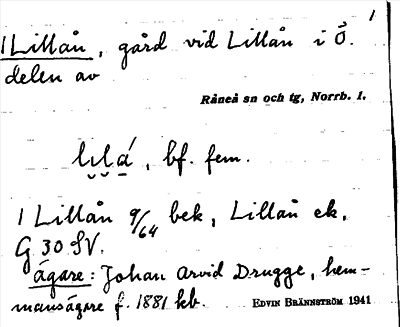 1
1 Lillån, gård vid Lillån i Ö.
delen av
Råneå sn och tg, Norrb. l.
lılá̱, bf. fem.
1 Lillån 9/64 bek, Lillån ek,
G 30 SV.
ägare: Johan Arvid Drugge, hem-
mansägare f. 1881 kb.
EDVIN BRÄNNSTRÖM 1941